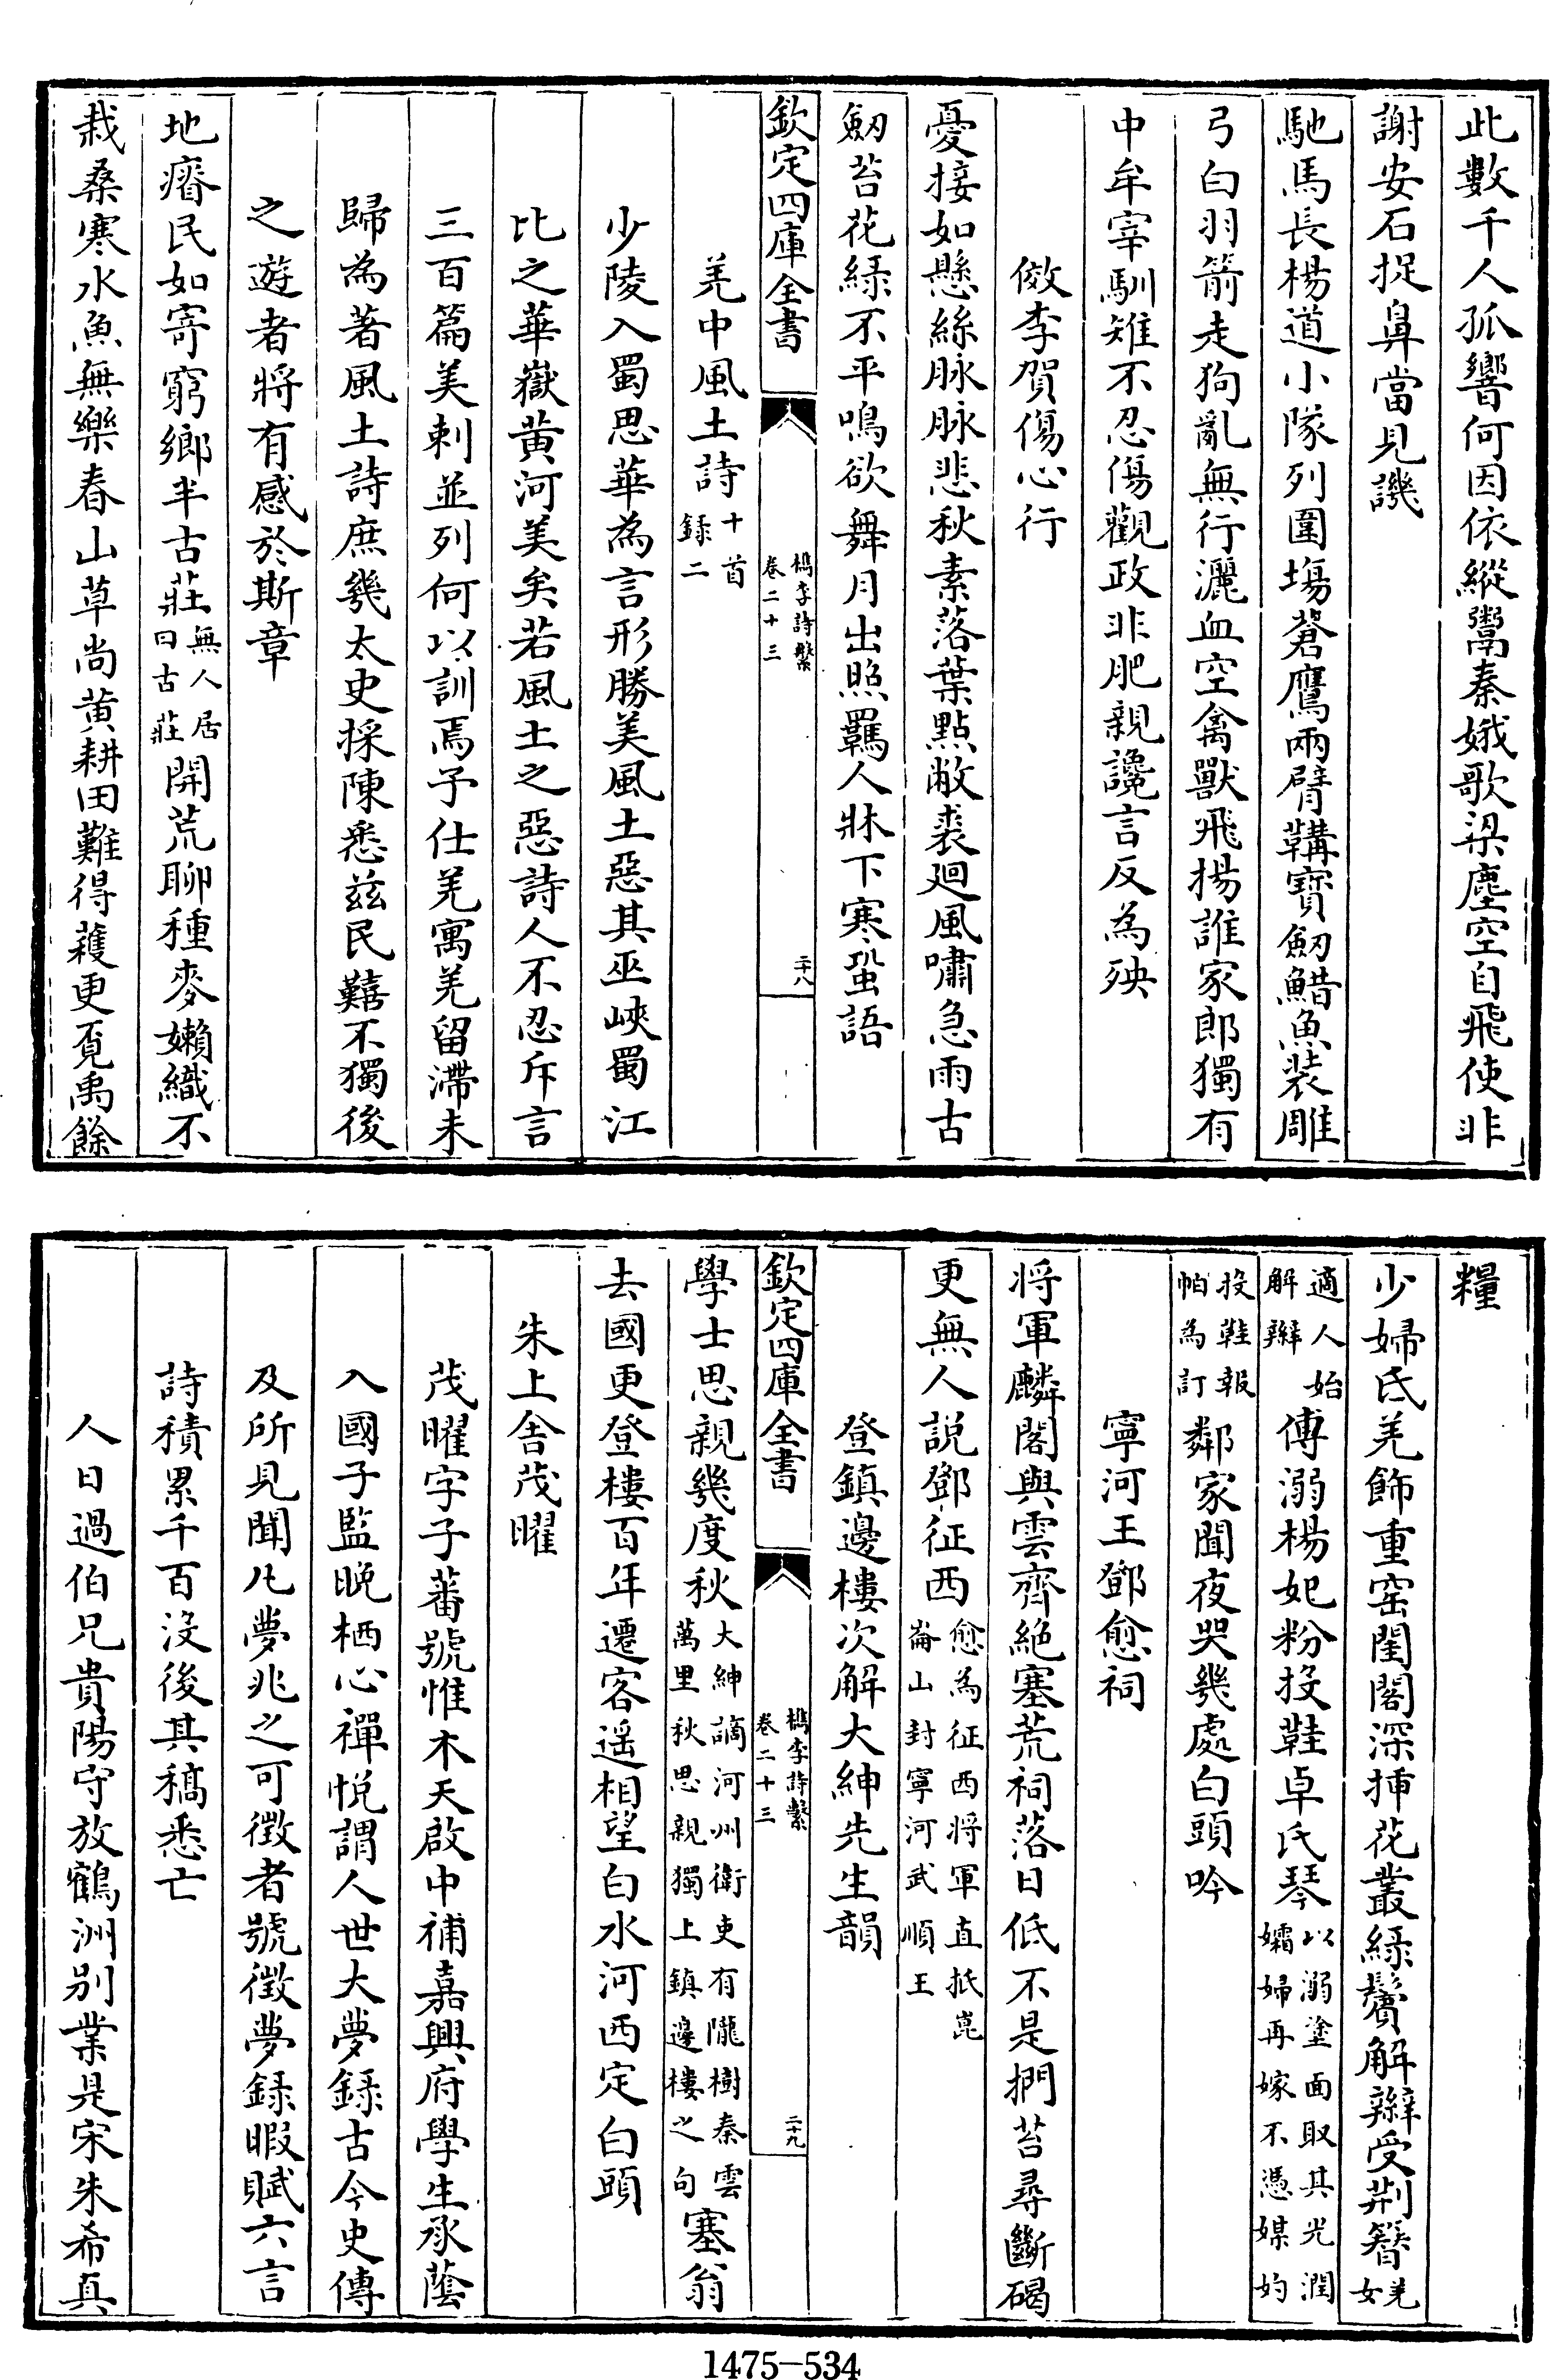 此數千人孤響何因依縱鬻秦娥歌梁塵空自飛使非
謝安石捉鼻當見譏
馳馬長楊道小隊列圍塲蒼鷹兩臂鞲寳劒鯌魚装雕
弓白羽箭走狗亂無行灑血空禽獸飛揚誰家郎獨有
中牟宰馴雉不忍傷觀政非肥親讒言反為殃
傚李賀傷心行
憂接如懸絲脉脉悲秋素落葉點敝裘廻風嘯急雨古
劒苔花緑不平鳴欲舞月出照羈人牀下寒蛩語
欽定四庫全書
檇李詩繫
卷二十三
二十八
羌中風土詩十首
録二
少陵入蜀思華為言形勝美風土惡其巫峽蜀江
比之華嶽黄河美矣若風土之惡詩人不忍斥言
三百篇美刺並列何以訓焉予仕羌寓羌留滯未
歸為著風土詩庶幾太史採陳悉兹民囏不獨後
之遊者將有感於斯章
地瘠民如寄窮鄉半古莊無人居
曰古莊開荒聊種麥嬾織不
栽桑寒水魚無樂春山草尚黄耕田難得穫更覔禹餘
糧
少婦氐羌飾重窑閨閣深挿花叢緑鬢解辮受荆簪羌女
適人始
解辮傅溺楊妃粉投鞋卓氏琴以溺塗面取其光潤
孀婦再嫁不憑媒妁
投鞋報
帕為訂鄰家聞夜哭幾處白頭吟
寧河王鄧愈祠
將軍麟閣與雲齊絶塞荒祠落日低不是捫苔尋斷碣
更無人説鄧征西愈為征西將軍直抵崑
崙山封寧河武順王
登鎮邊樓次解大紳先生韻
學士思親幾度秋大紳謫河州衛吏有隴樹秦雲
萬里秋思親獨上鎮邊樓之句塞翁
去國更登樓百年遷客遥相望白水河西定白頭
欽定四庫全書
檇李詩繫
卷二十三
二十九
朱上舍茂曜
茂曜字子蕃號惟木天啟中補嘉興府學生承蔭
入國子監晚栖心禪悦謂人世大夢録古今史傳
及所見聞凡夢兆之可徴者號徴夢録暇賦六言
詩積累千百没後其稿悉亡
人日過伯兄貴陽守放鶴洲别業是宋朱希真
1475—534